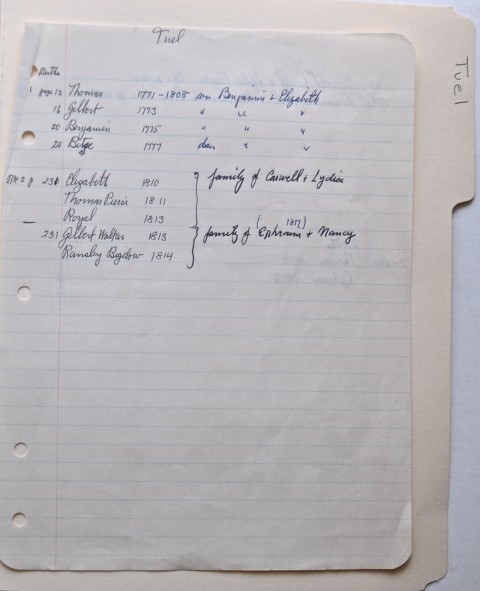 Tuel
Tuel
Births
1 page 13 Thomas 1771-1808 son Benjamin + Elizabeth
16 Gilbert 1773 " " "
20 Benjamin 1775 " " "
24 Betze 1777 dau " "
230 Elizabeth 1810 family of Carwell + Lydia
Thomas Pierce 1811
Royal 1813
231 Gilbert Walker 1813 family of (Ephraim 1817) + Nancy
Ransley Bigelow 1814